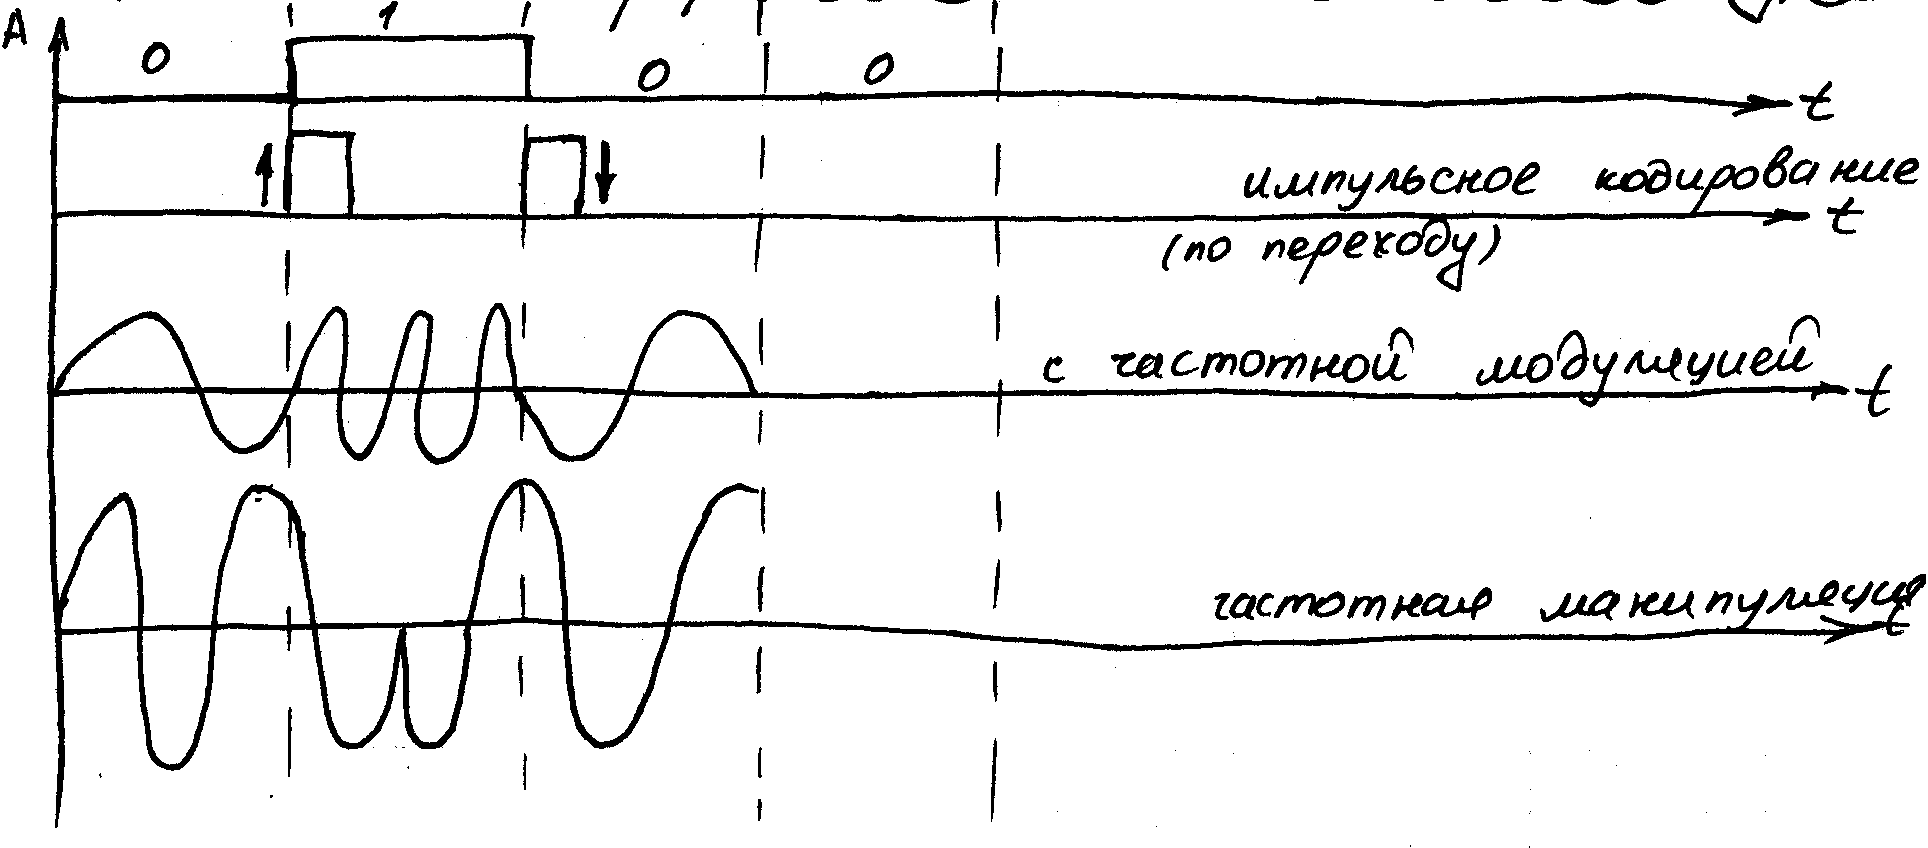 A
1
0 0 0
t
импульсное кодирование
t
(по переходу)
с частотной модуляцией
t
частотная манипуляция
t